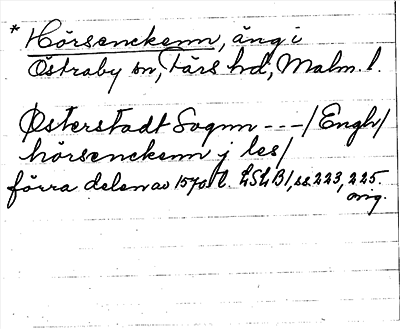 * Hörsenckenn, äng i
Östraby sn, Färs hd, Malm. l.
Østerstadt Sognn - - - / Engh /
hörsenckenn j les /
förra delen av 1570. t. LSLB1, ss. 223, 225.
orig.